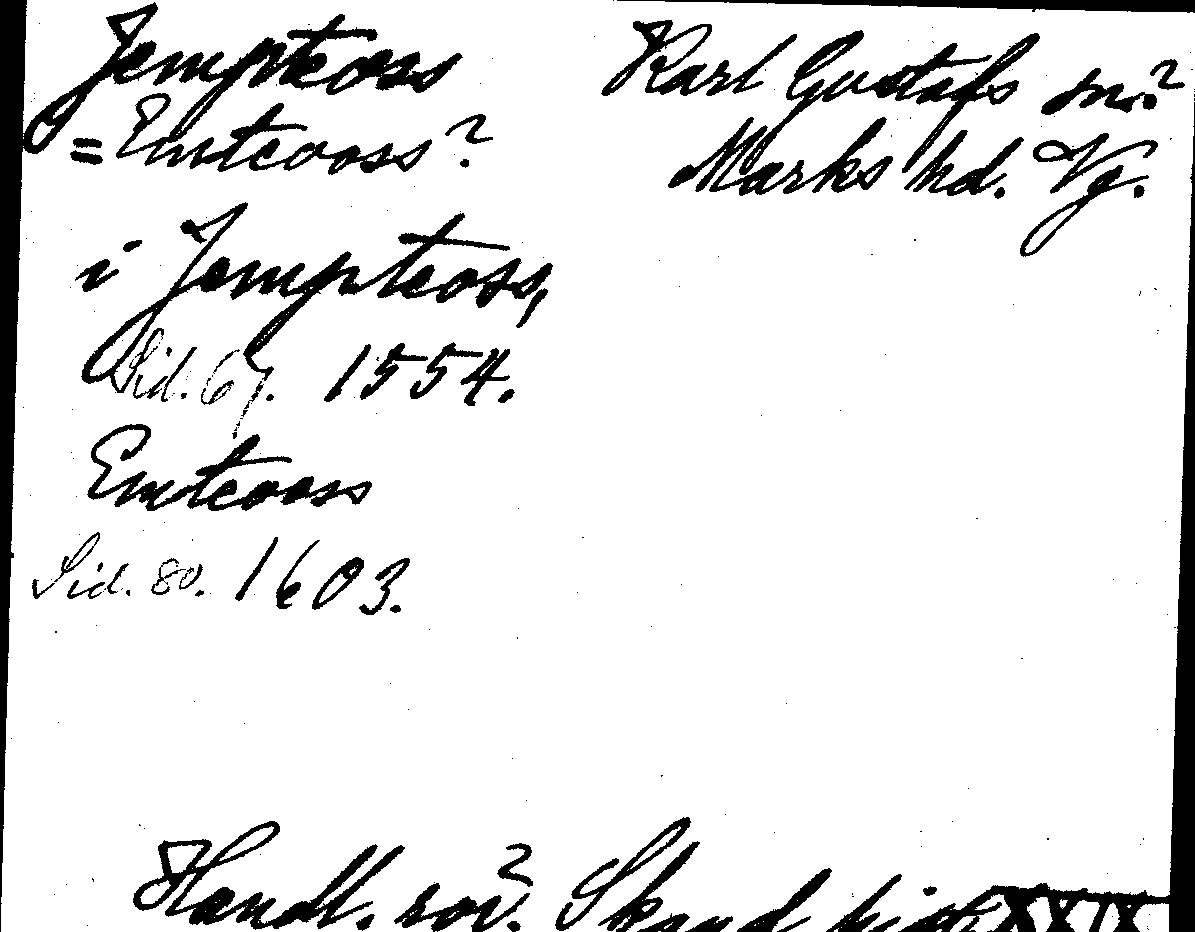 Jempteoss Karl Gustafs sn.?
= Emteooss? Marks hd. Vg.
i Jempteoss,
Sid. 67. 1554.
Emteooss
Sid. 80. 1603.
Handl. rör. Skand hist. XXIX